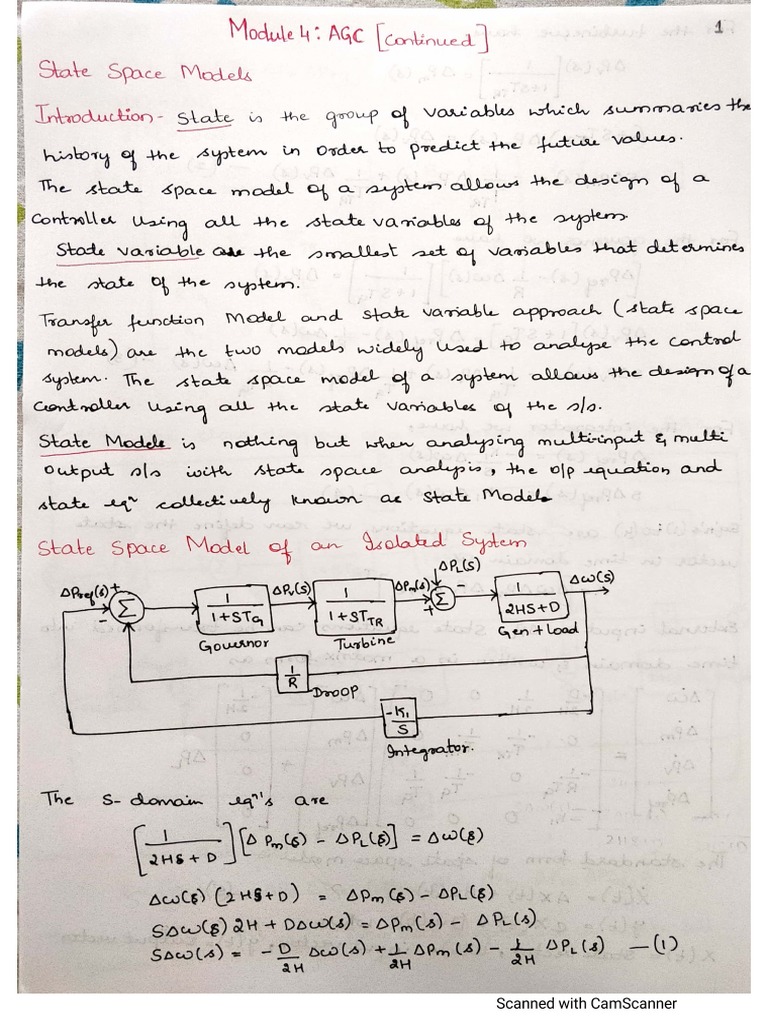 Module 4 : AGC [continued]
1
State Space Models
Introduction - State is the group of variables which summaries the
history of the system in order to predict the future values.
The state space model of a system allows the design of a
controller using all the state variables of the system.
State variable are the smallest set of variables that determines
the state of the system.
Transfer function Model and state variable approach (state space
models) are the two models widely used to analyse the control
system. The state space model of a system allows the design of a
controller using all the state variables of the s/s.
State Models is nothing but when analysing multi-input & multi
output s/s with state space analysis, the o/p equation and
state eqⁿ collectively known as State Model.
State Space Model of an Isolated System
ΔPref(s) + - Σ
1 / 1+STG
Governor
ΔPv(s)
1 / 1+STTR
Turbine
ΔPm(s) + Σ -
ΔPL(s)
1 / 2HS+D
Gen + Load
Δω(s)
1/R
DrooP
-K1/S
Integrator.
The s-domain eqⁿ's are
[1 / 2HS + D] [ΔPm(s) - ΔPL(s)] = Δω(s)
Δω(s) (2HS+D) = ΔPm(s) - ΔPL(s)
SΔω(s) 2H + DΔω(s) = ΔPm(s) - ΔPL(s)
SΔω(s) = -D/2H Δω(s) + 1/2H ΔPm(s) - 1/2H ΔPL(s) — (1)
Scanned with CamScanner